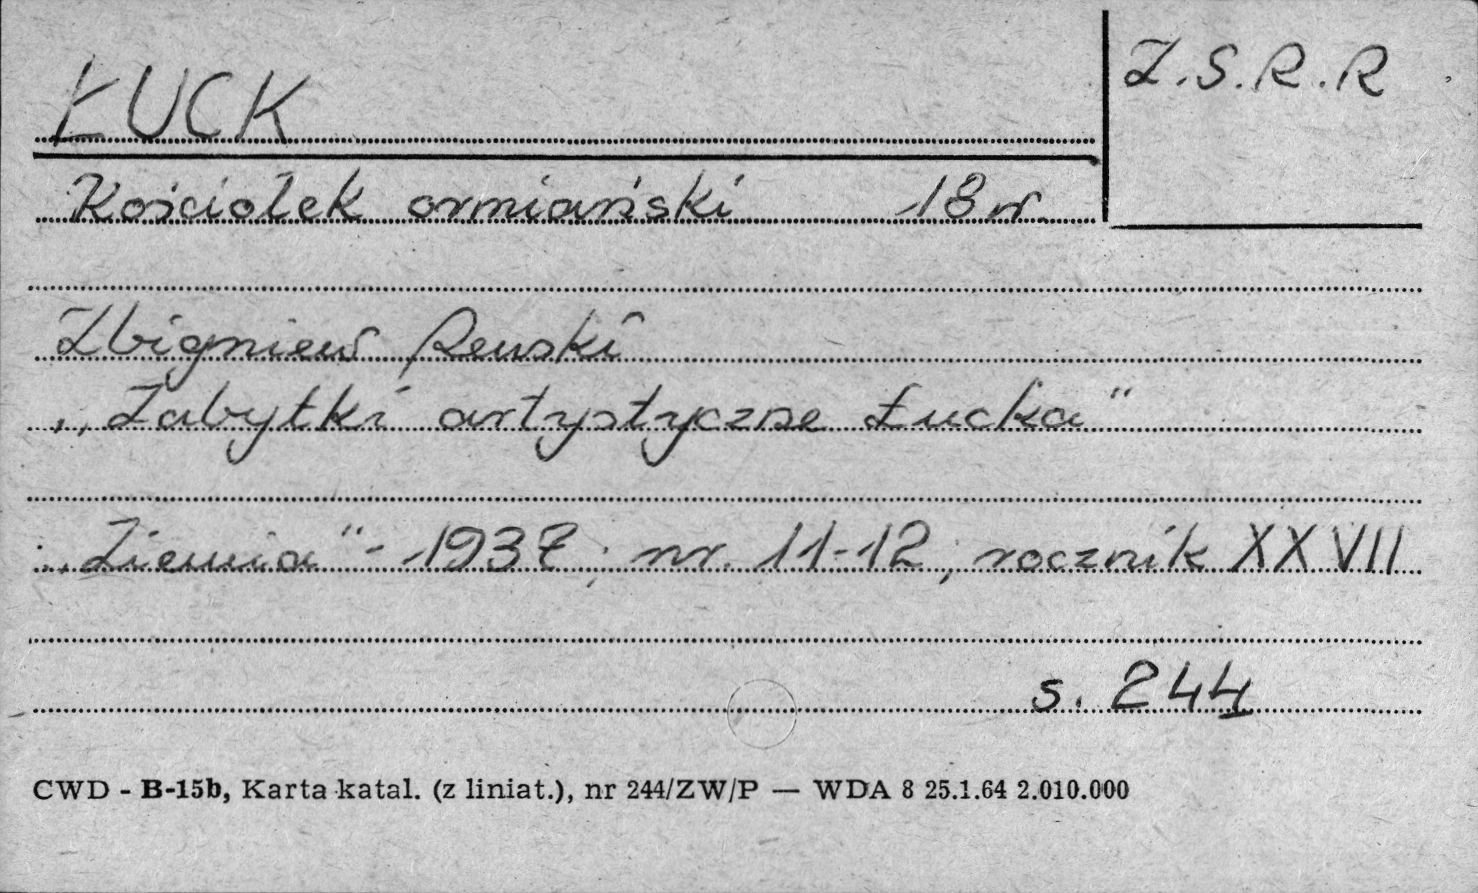 ŁUCK
Z.S.R.R
Kościołek ormiański 18 w.
Zbigniew Rewski
„Zabytki artystyczne Łucka"
„Ziemia" - 1937; nr. 11-12, rocznik XXVII
s. 244
CWD - B-15b, Karta katal. (z liniat.), nr 244/ZW/P — WDA 8 25.1.64 2.010.000